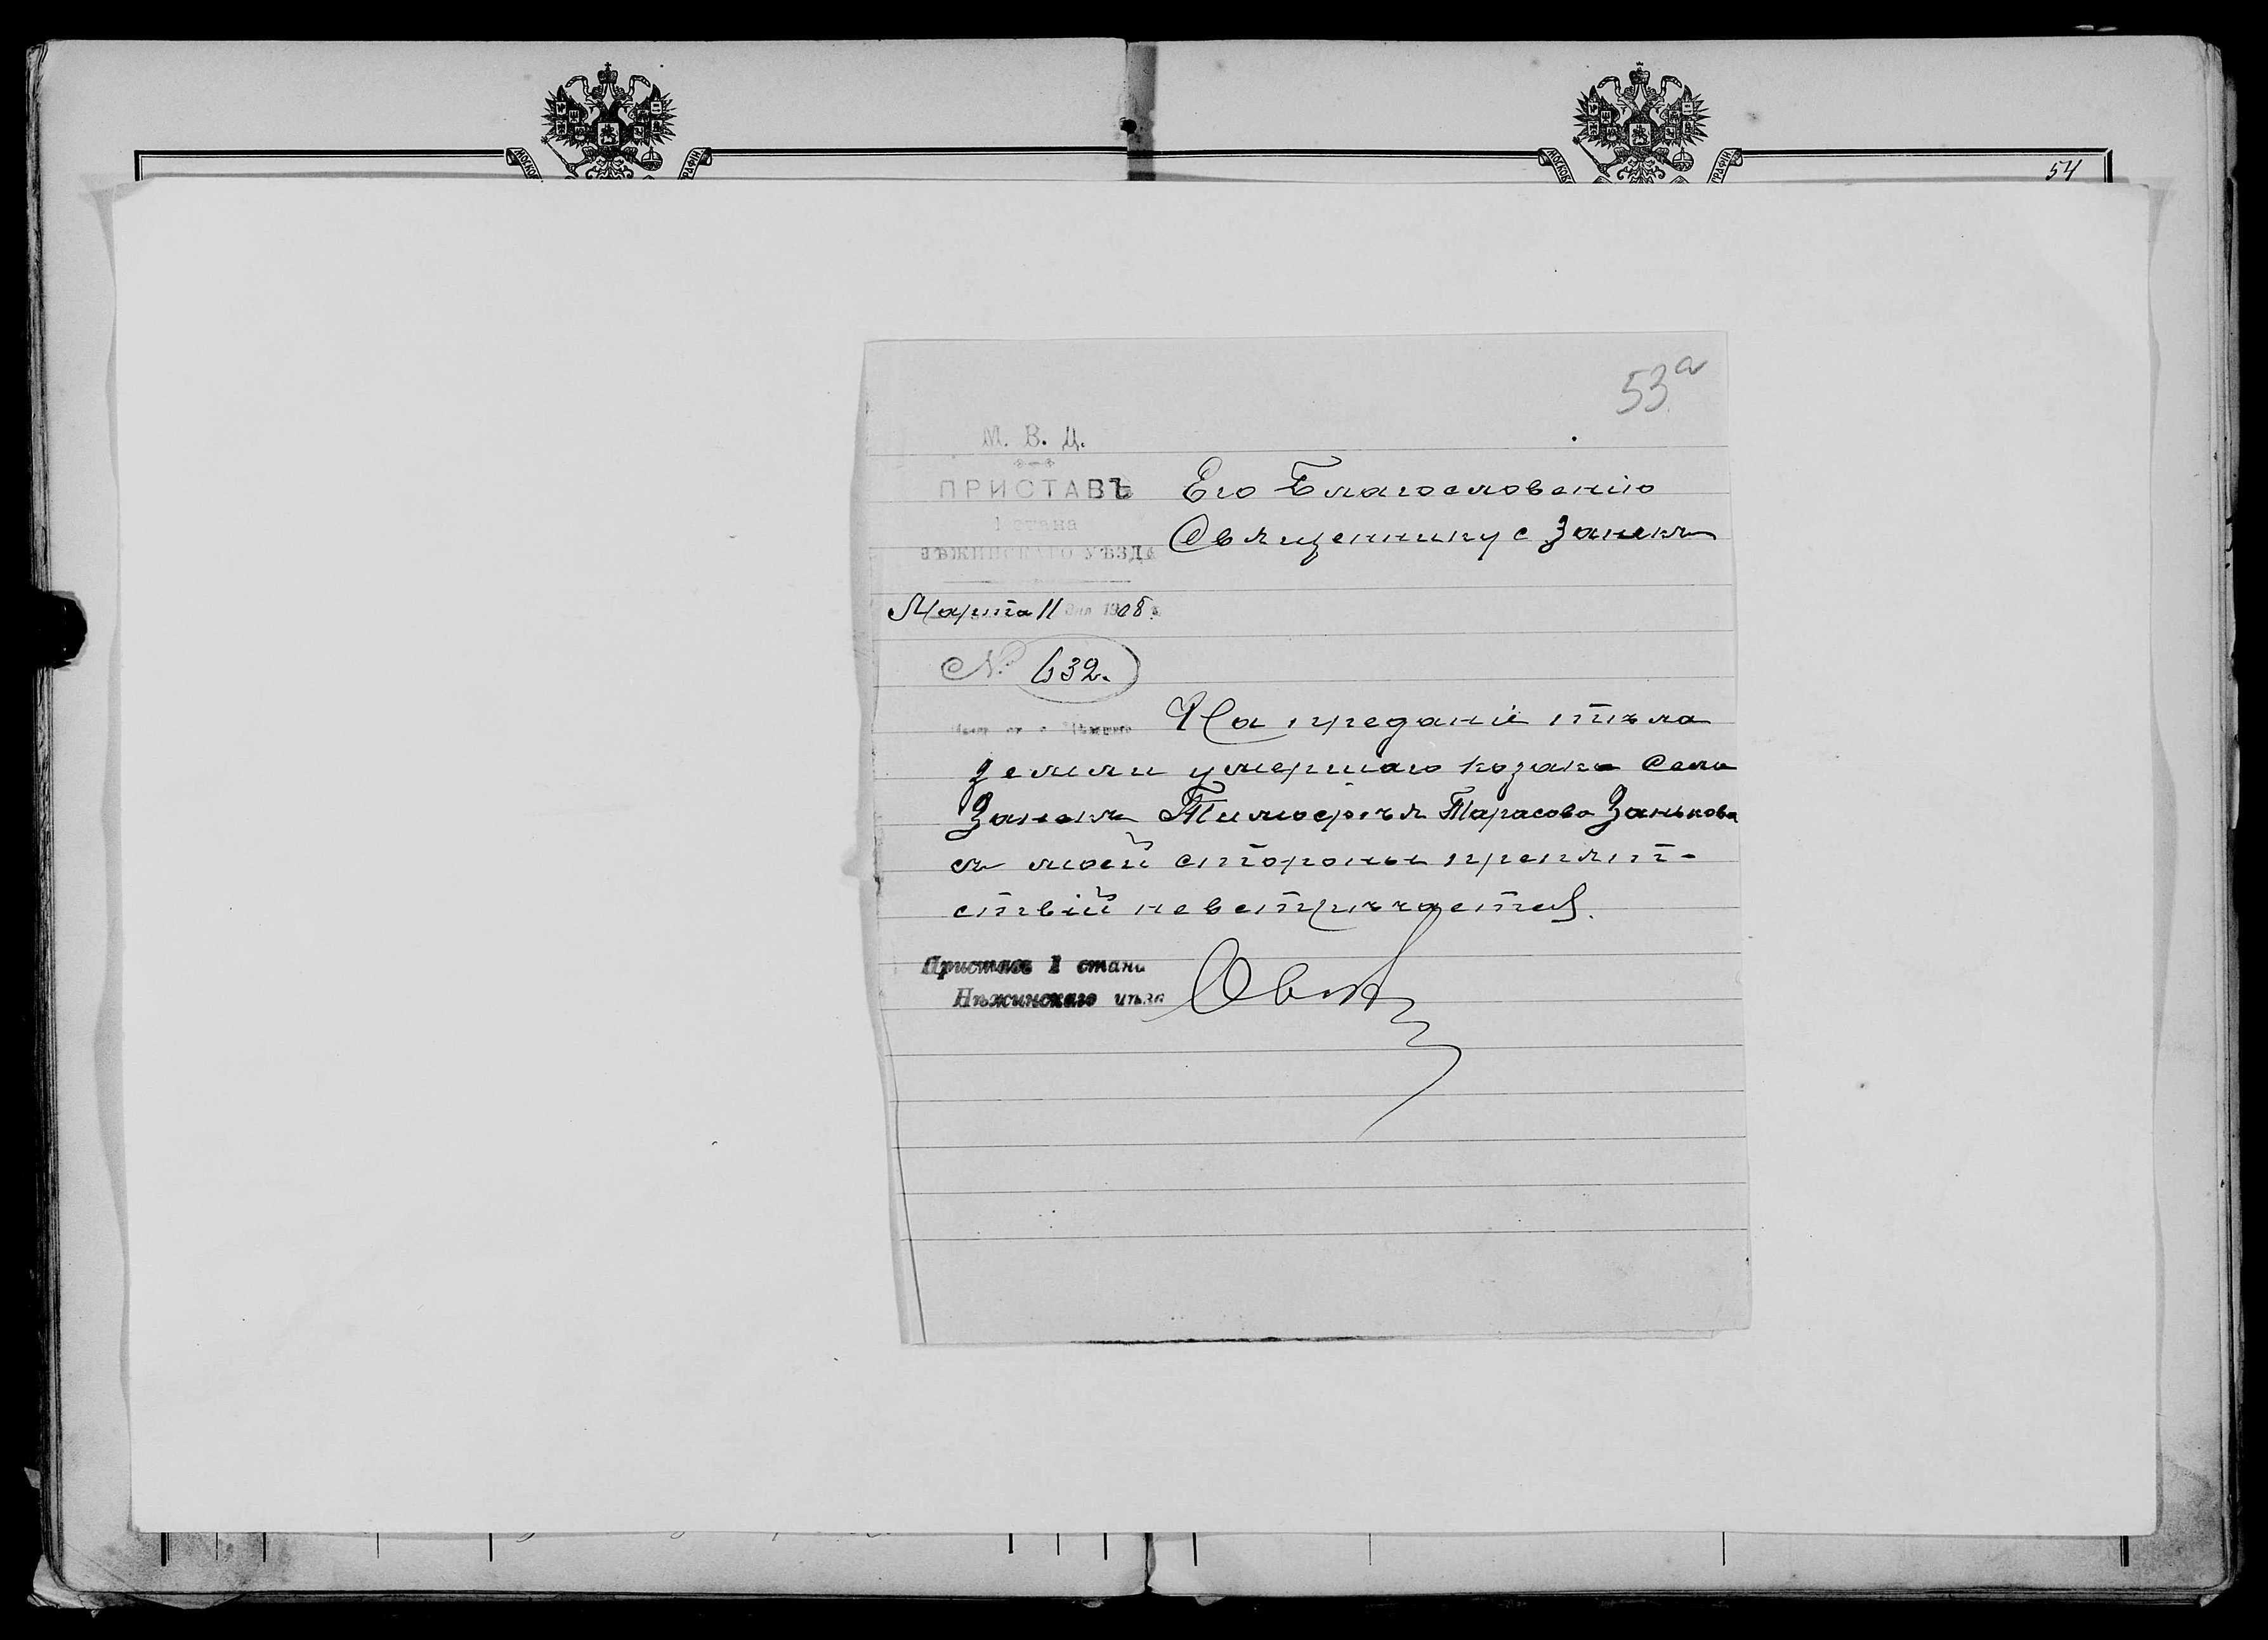 54
53а
М. В. Д.
ПРИСТАВЪ
1 стана
НѢЖИНСКАГО УѢЗДА
Марта 11 дня 1908 г.
№ 632.
Его Благословенію
Священнику с Занекъ
На преданіе тѣла
земли умершаго козака села
Занекъ Тимофѣя Тарасова Занькова
съ моей стороны препят-
ствій невстрѣчается.
Приставъ 1 стана
Нѣжинскаго уѣзд